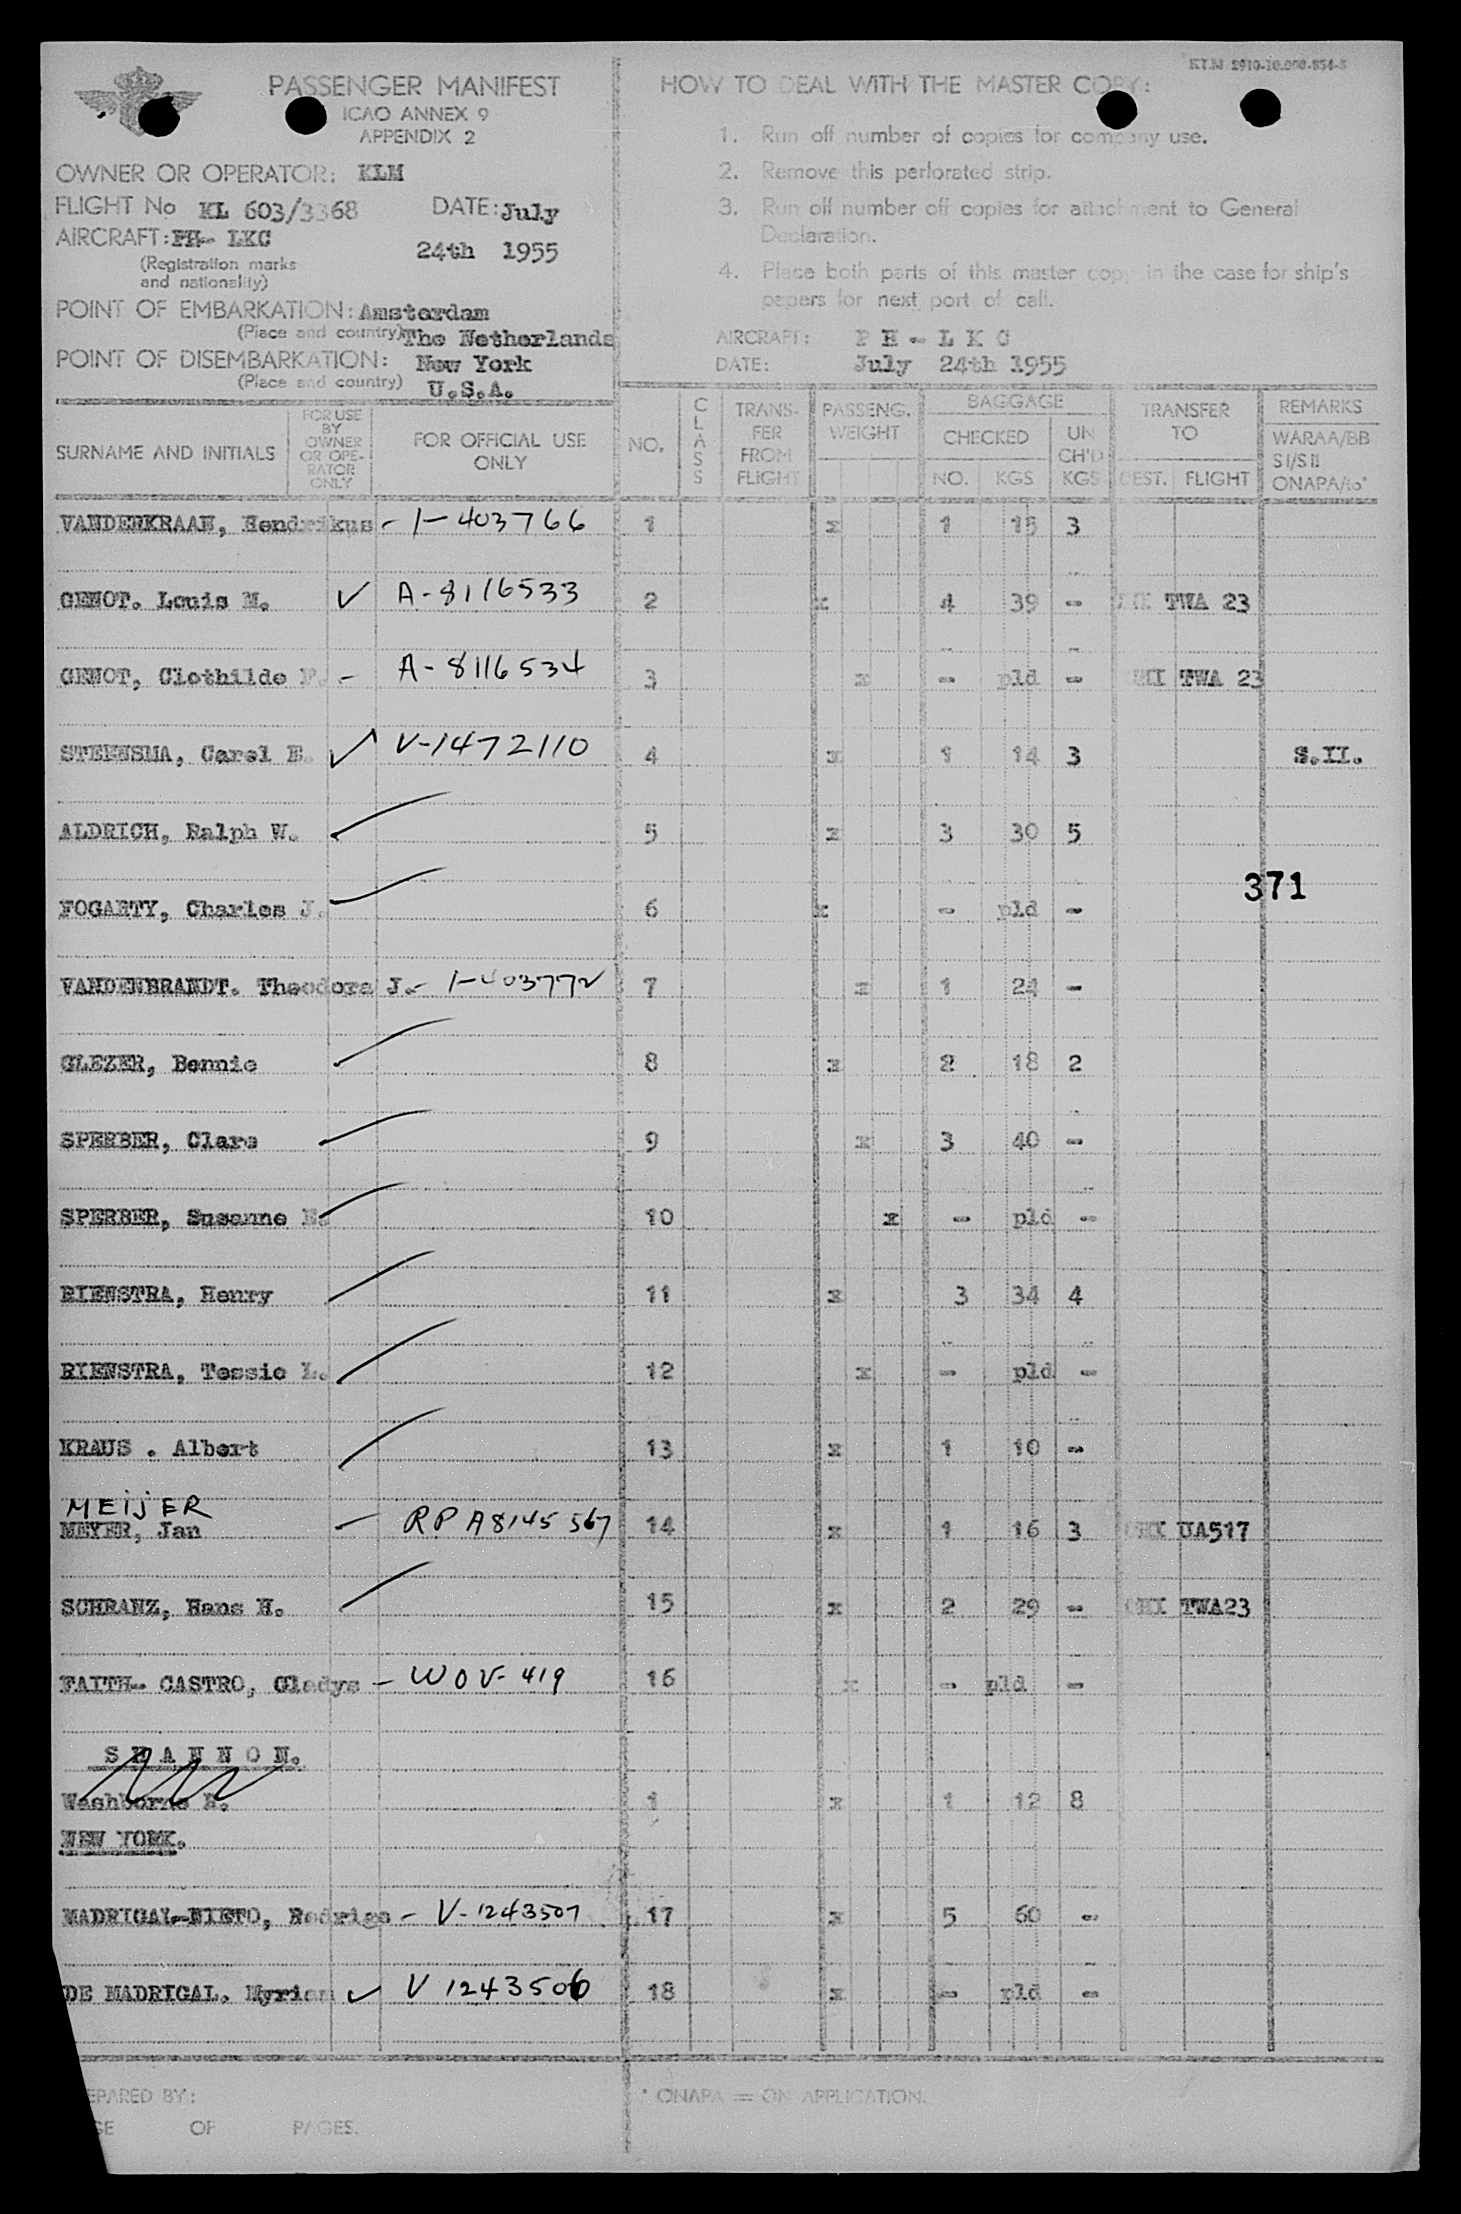 KLM 2910-10.000-854-S
PASSENGER MANIFEST
ICAO ANNEX 9
APPENDIX 2
OWNER OR OPERATOR: KLM
FLIGHT No KL 603/3368 DATE: July
AIRCRAFT: PH- LKC 24th 1955
(Registration marks
and nationality)
POINT OF EMBARKATION: Amsterdam
(Place and country) The Netherlands
POINT OF DISEMBARKATION: New York
(Place and country) U.S.A.
HOW TO DEAL WITH THE MASTER COPY:
1. Run off number of copies for company use.
2. Remove this perforated strip.
3. Run off number off copies for attachment to General
Declaration.
4. Place both parts of this master copy in the case for ship's
papers for next port of call.
AIRCRAFT: P H - L K C
DATE: July 24th 1955
SURNAME AND INITIALS FOR USE BY OWNER OR OPE- RATOR ONLY FOR OFFICIAL USE ONLY NO. CLASS TRANS- FER FROM FLIGHT PASSENG. WEIGHT BAGGAGE CHECKED NO. KGS UN CH'D KGS TRANSFER TO DEST. FLIGHT REMARKS WARAA/BB SI/SII ONAPA/io*
VANDENKRAAN, Hendrikus - 1-403766 1 x 1 15 3
GENOT. Louis M. ✓ A-8116533 2 x 4 39 - TWA 23
GENOT, Clothilde F. - A-8116534 3 x - pld - CHI TWA 23
STEENSMA, Carel E. ✓ V-1472110 4 x 1 14 3 S.II.
ALDRICH, Ralph W. 5 x 3 30 5
371
FOGARTY, Charles J. 6 x - pld -
VANDENBRANDT. Theodora J.- 1-403772 7 x 1 24 -
GLEZER, Bennie 8 x 2 18 2
SPERBER, Clara 9 x 3 40 -
SPERBER, Susanne E. 10 x - pld -
RIENSTRA, Henry 11 x 3 34 4
RIENSTRA, Tessie L. 12 x - pld -
KRAUS . Albert 13 x 1 10 -
MEIJER
MEYER, Jan - RP A8145567 14 x 1 16 3 CHI UA517
SCHRANZ, Hans H. 15 x 2 29 - CHI TWA23
FAITH- CASTRO, Gladys - WOV-419 16 x - pld -
S H A N N O N.
Washborne 1 x 1 12 8
NEW YORK.
MADRIGAL-NIETO, Rodrigo - V-1243507 17 x 5 60 -
DE MADRIGAL. Myriam ✓ V 1243506 18 x - pld -
EPARED BY:
GE OF PAGES.
* ONAPA = ON APPLICATION.